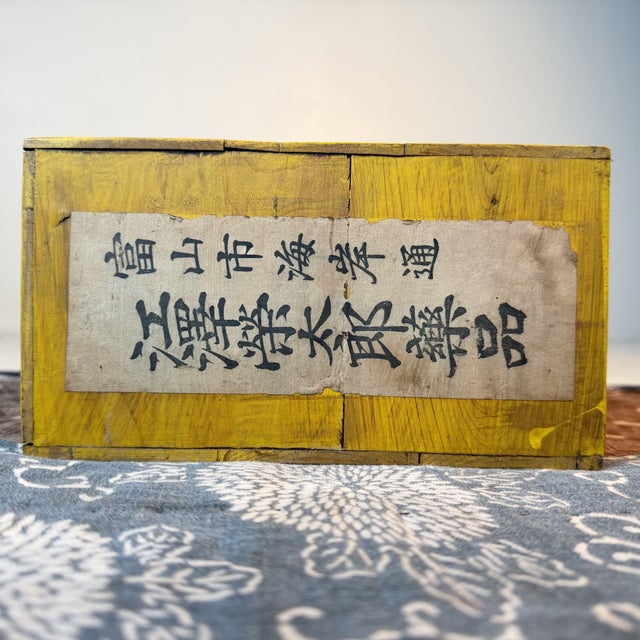 富山市海岸通
江澤榮太郎藥品